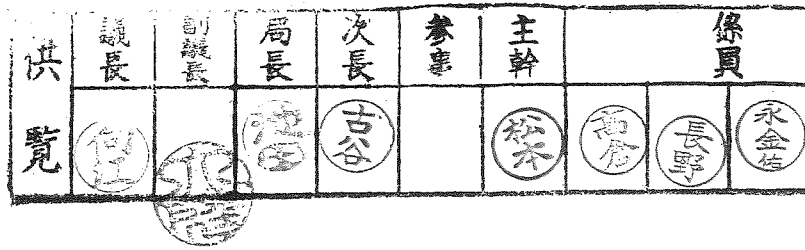 供覧 議長 副議長 局長 次長 参事 主幹 係員
古谷 松本 高倉 長野 永金佑